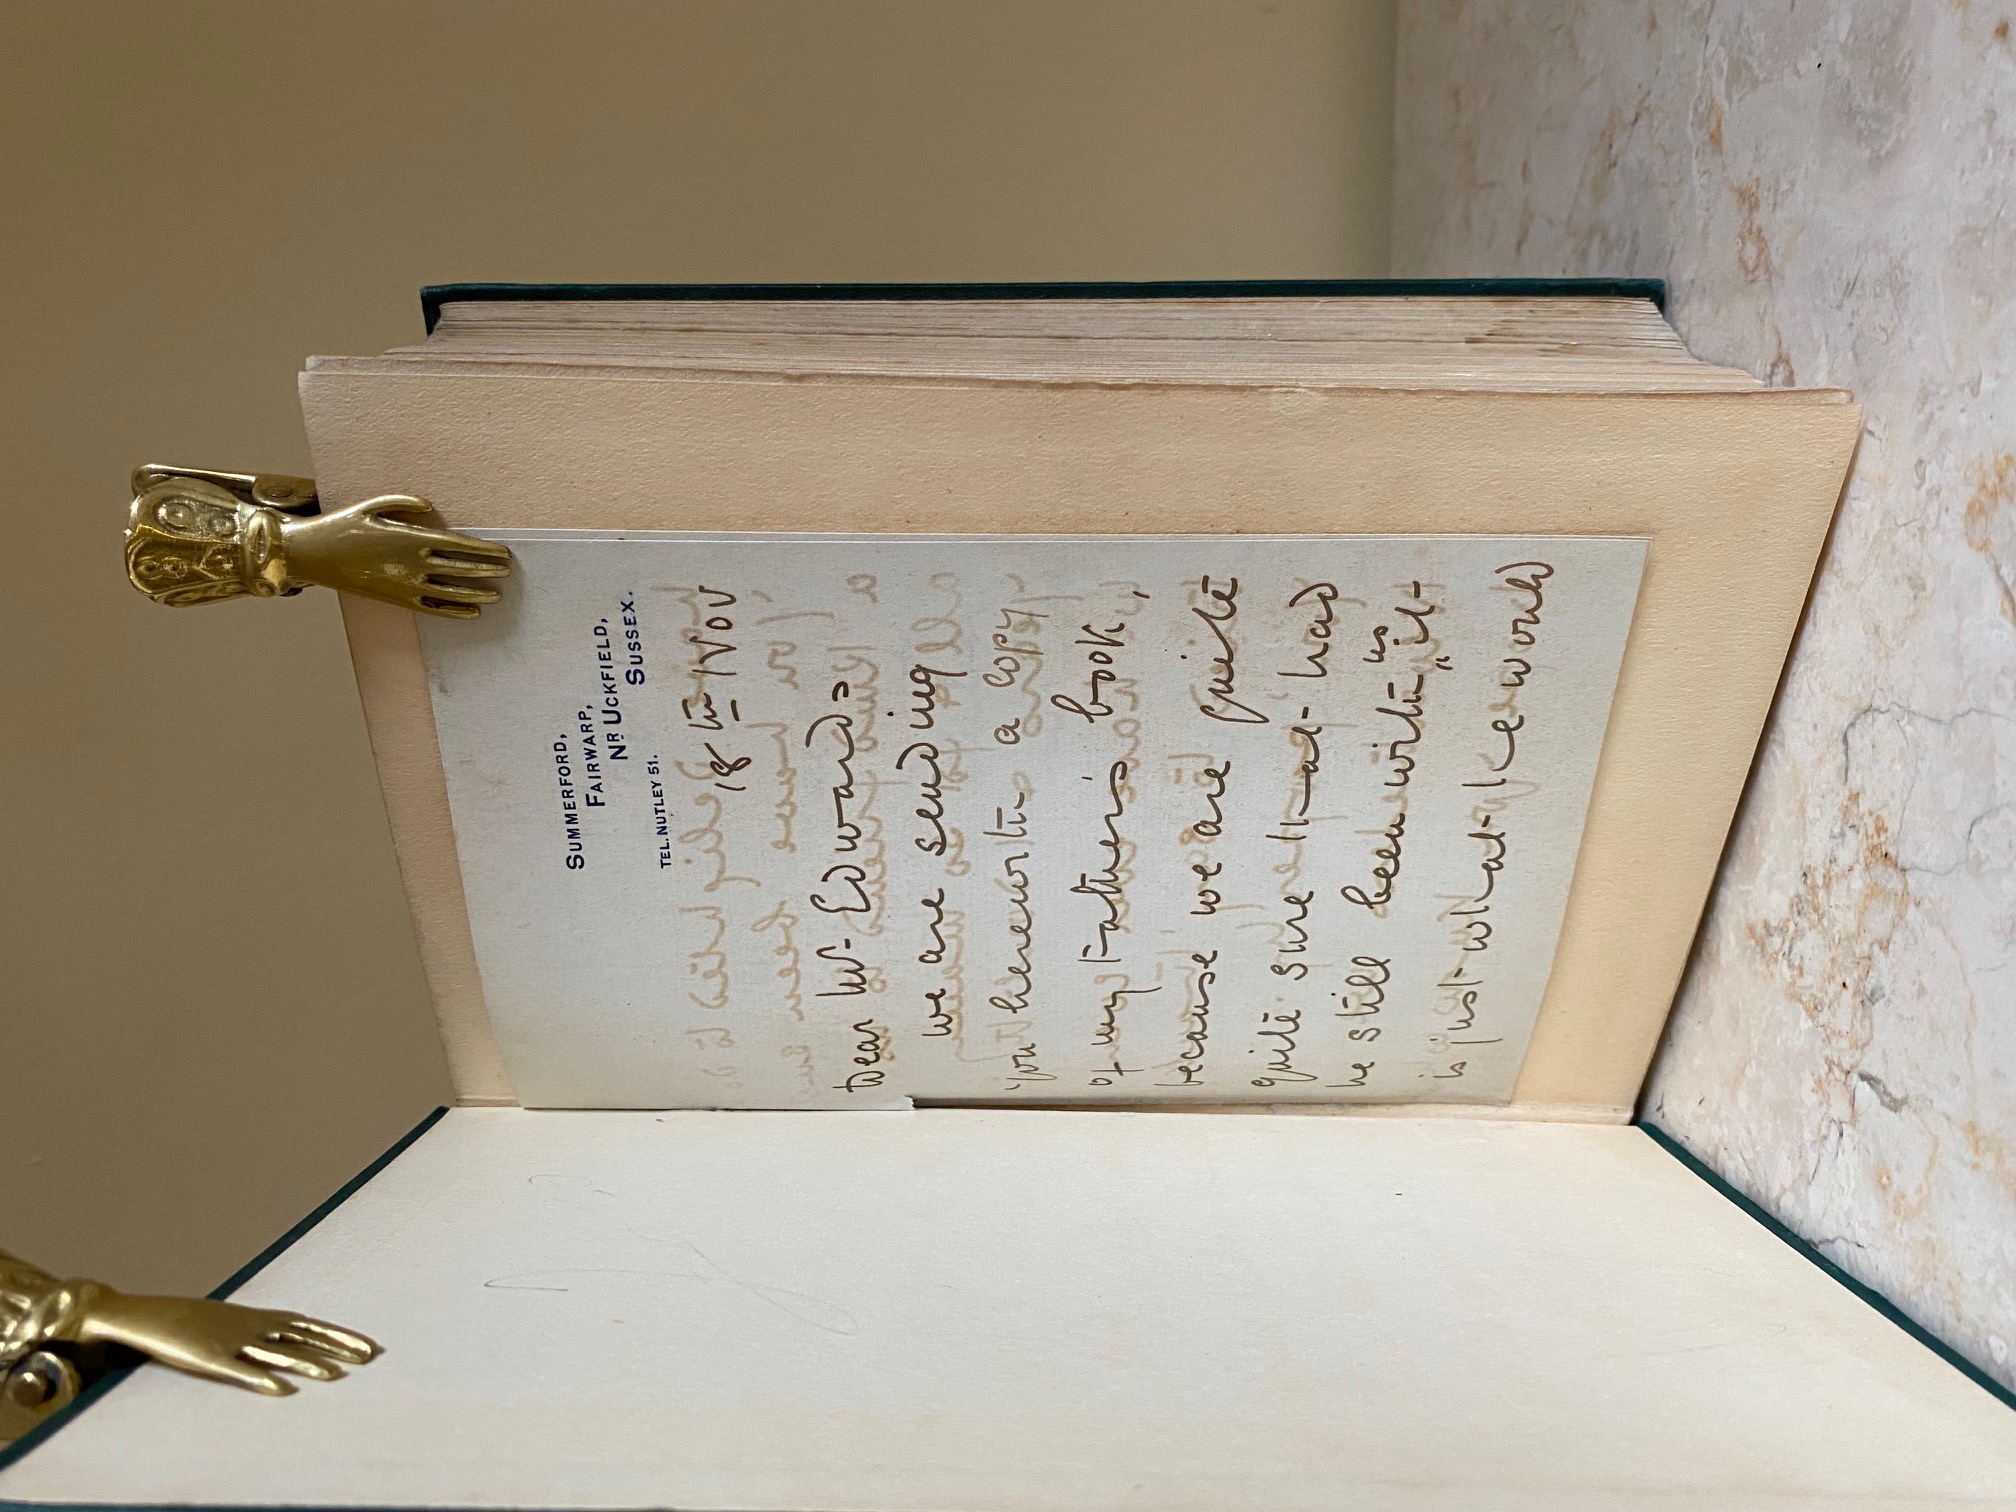 SUMMERFORD,
FAIRWARP,
NR UCKFIELD,
SUSSEX.
TEL. NUTLEY 51.
18th Nov
Dear Mr. Edwards
We are sending
you herewith a copy
of my father's book,
because we are quite
quite sure that had
he still been with us it
is just what he would